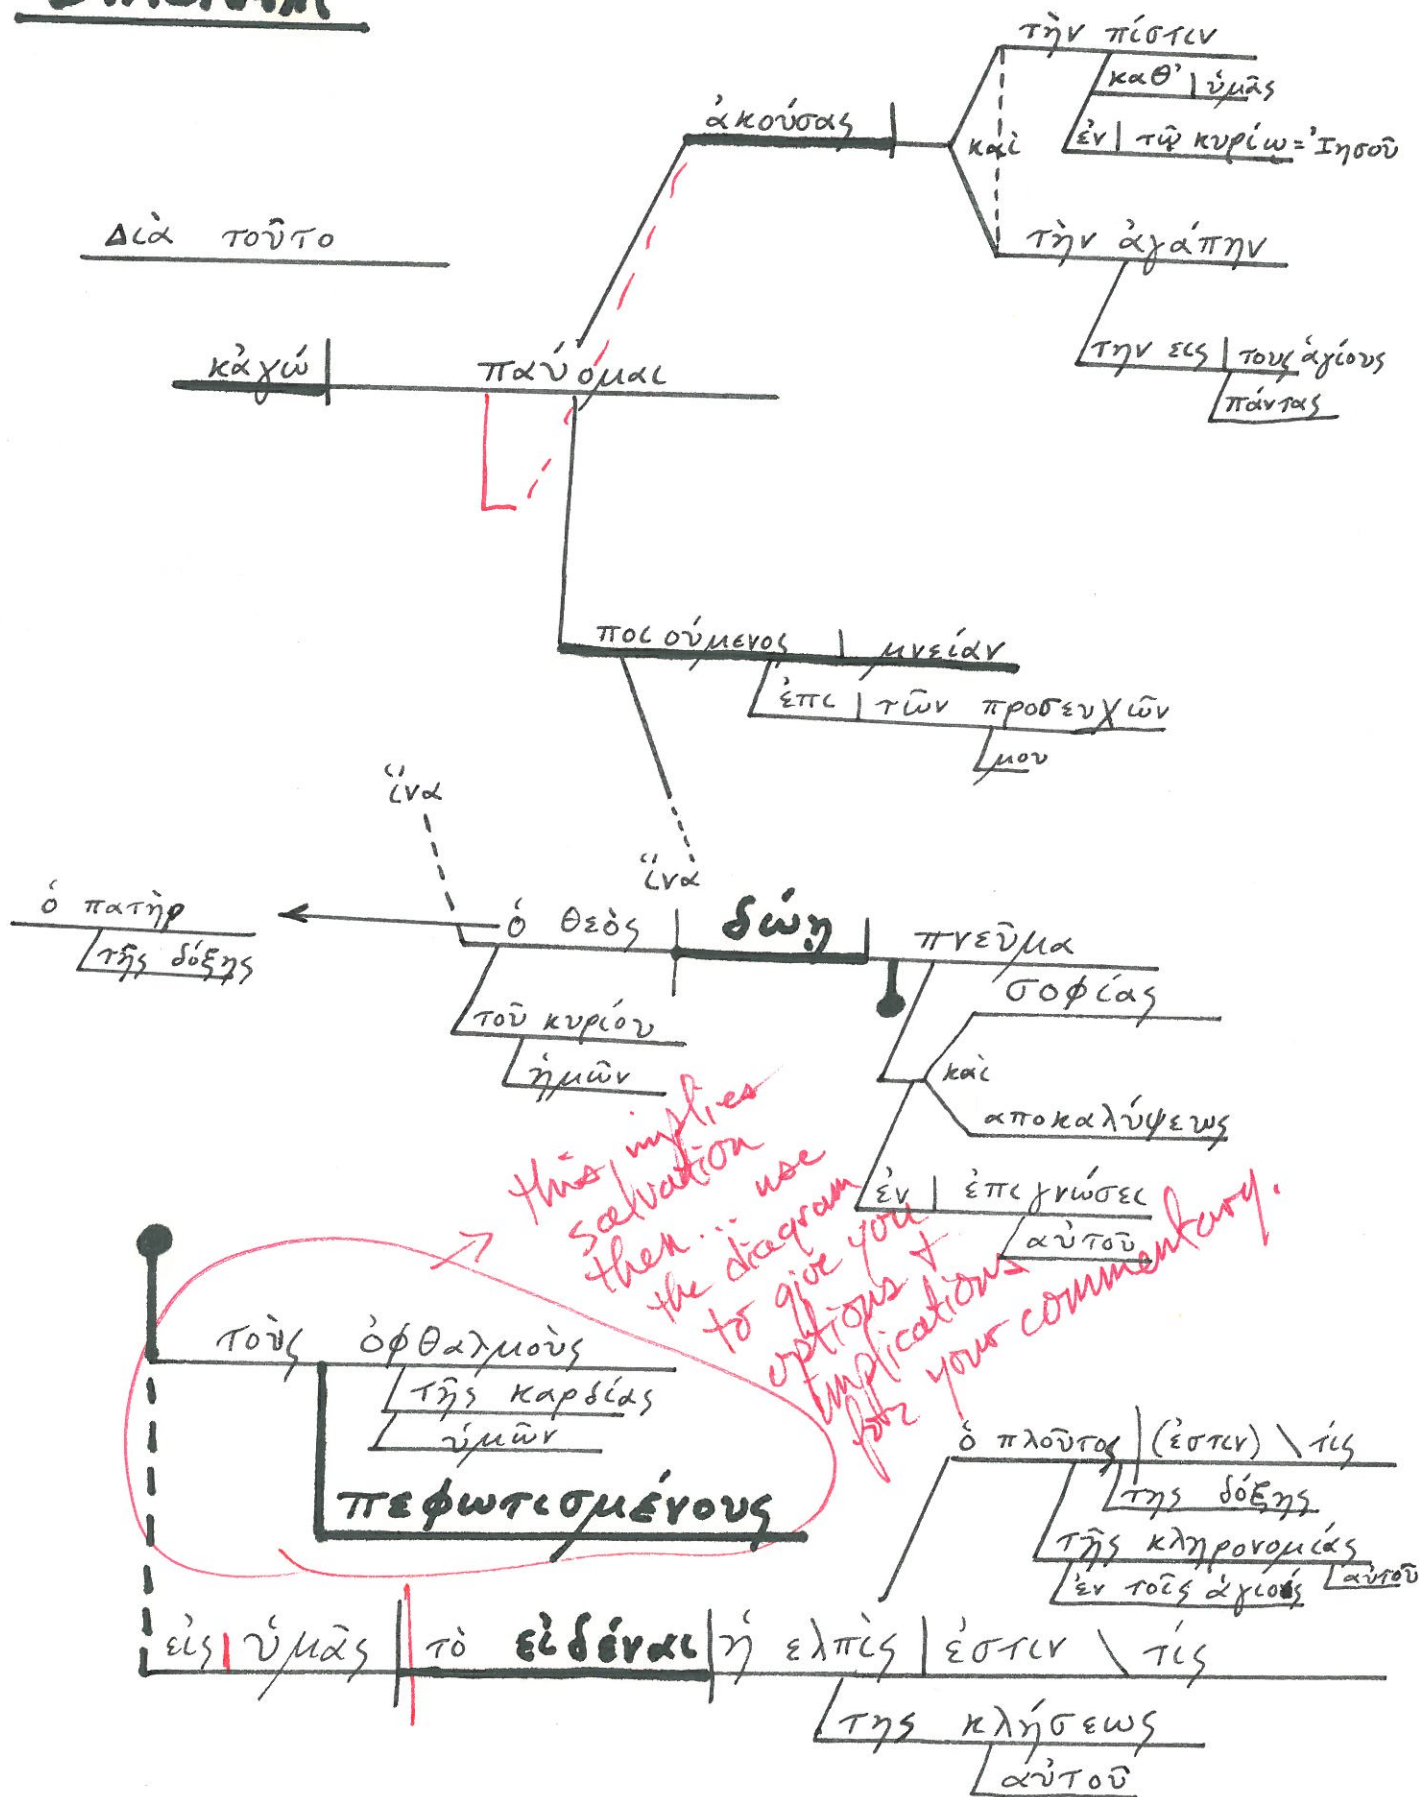 DIAGRAM
τὴν πίστιν
καθ' ὑμᾶς
ἀκούσας
καὶ
ἐν τῷ κυρίῳ = Ἰησοῦ
Διὰ τοῦτο
τὴν ἀγάπην
κἀγώ παύομαι
την εις τους ἁγίους
πάντας
ποιούμενος μνείαν
ἐπι τῶν προσευχῶν
μου
ἵνα
ἵνα
ὁ πατὴρ
τῆς δόξης
ὁ θεὸς δώῃ πνεῦμα
σοφίας
τοῦ κυρίου
ἡμῶν
καὶ
αποκαλύψεως
ἐν ἐπιγνώσει
αὐτοῦ
this implies
salvation
then... use
the diagram
to give you
options +
implications
for your commentary.
τοὺς ὀφθαλμοὺς
τῆς καρδίας
ὑμῶν
πεφωτισμένους
ὁ πλοῦτος (ἐστιν) \ τίς
της δόξης
τῆς κληρονομίας
αὐτοῦ
ἐν τοῖς ἁγίοις
εἰς ὑμᾶς τὸ εἰδέναι ἡ ελπὶς ἐστιν \ τίς
της κλήσεως
αὐτοῦ